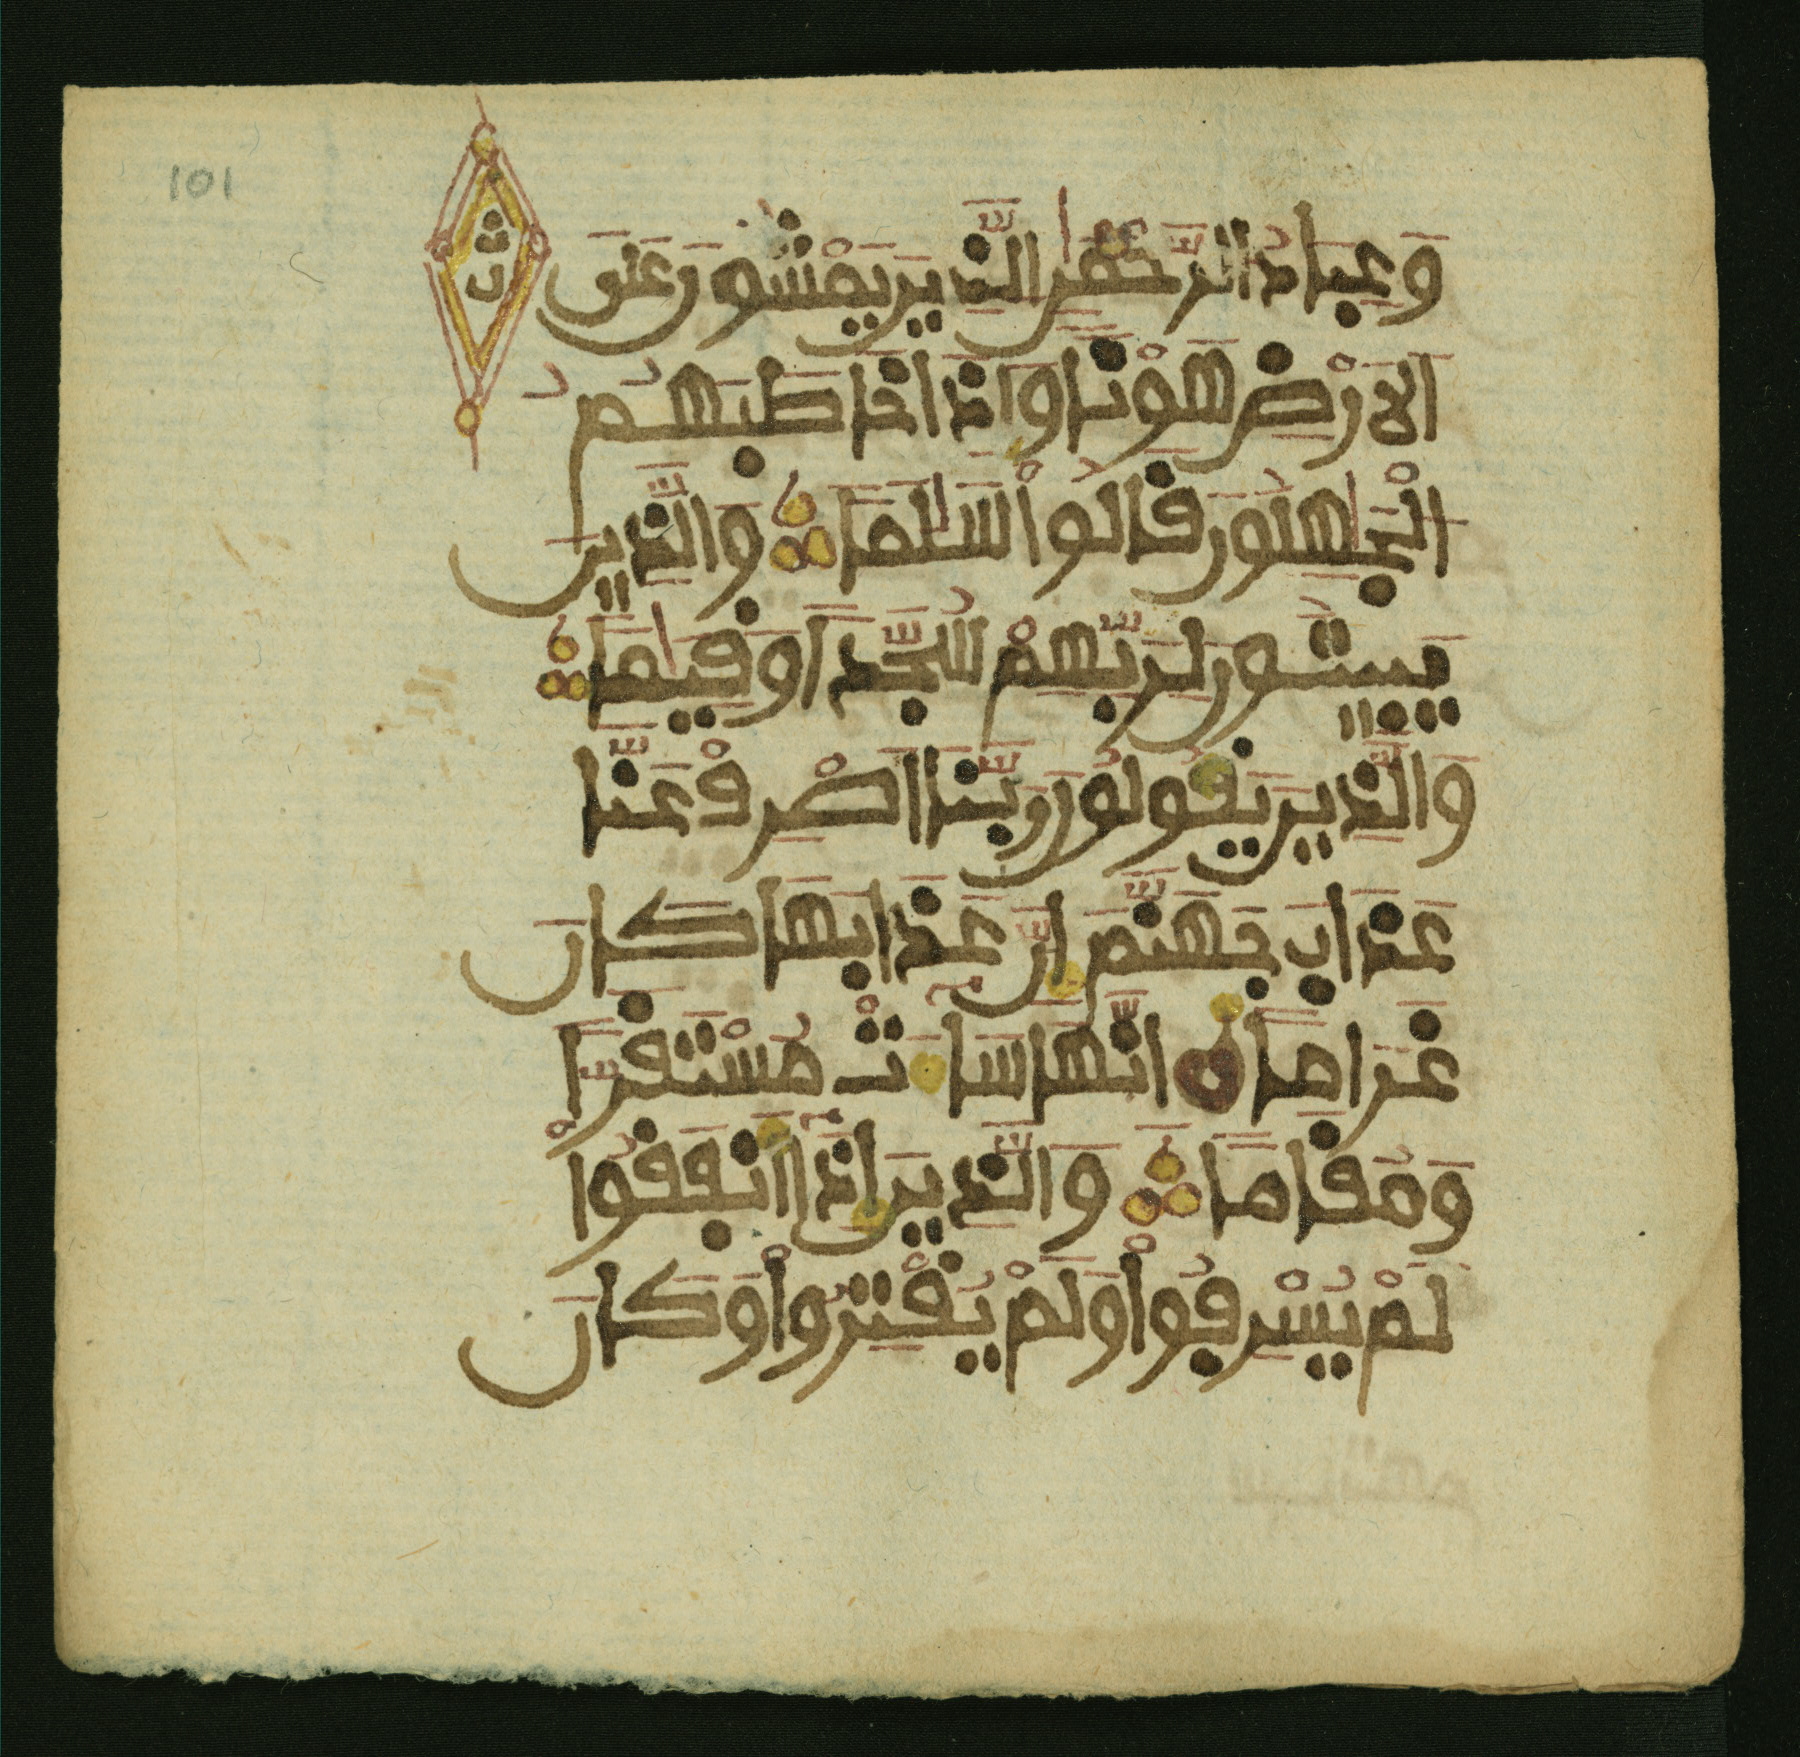 101
ث
وَعِبَادُ الرَّحْمَٰنِ الَّذِينَ يَمْشُونَ عَلَى
الَارْضِ هَوْنًا وَإِذَا خَاطَبَهُمُ
الْجَٰهِلُونَ قَالُواْ سَلَٰمًا وَالَّذِينَ
يَبِيتُونَ لِرَبِّهِمْ سُجَّدًا وَقِيَٰمًا
وَالَّذِينَ يَقُولُونَ رَبَّنَا اصْرِفْ عَنَّا
عَذَابَ جَهَنَّمَ إِنَّ عَذَابَهَا كَانَ
غَرَامًا إِنَّهَا سَاءَتْ مُسْتَقَرًّا
وَمُقَامًا وَالَّذِينَ إِذَا أَنفَقُواْ
لَمْ يُسْرِفُواْ وَلَمْ يُقْتِرُواْ وَكَانَ